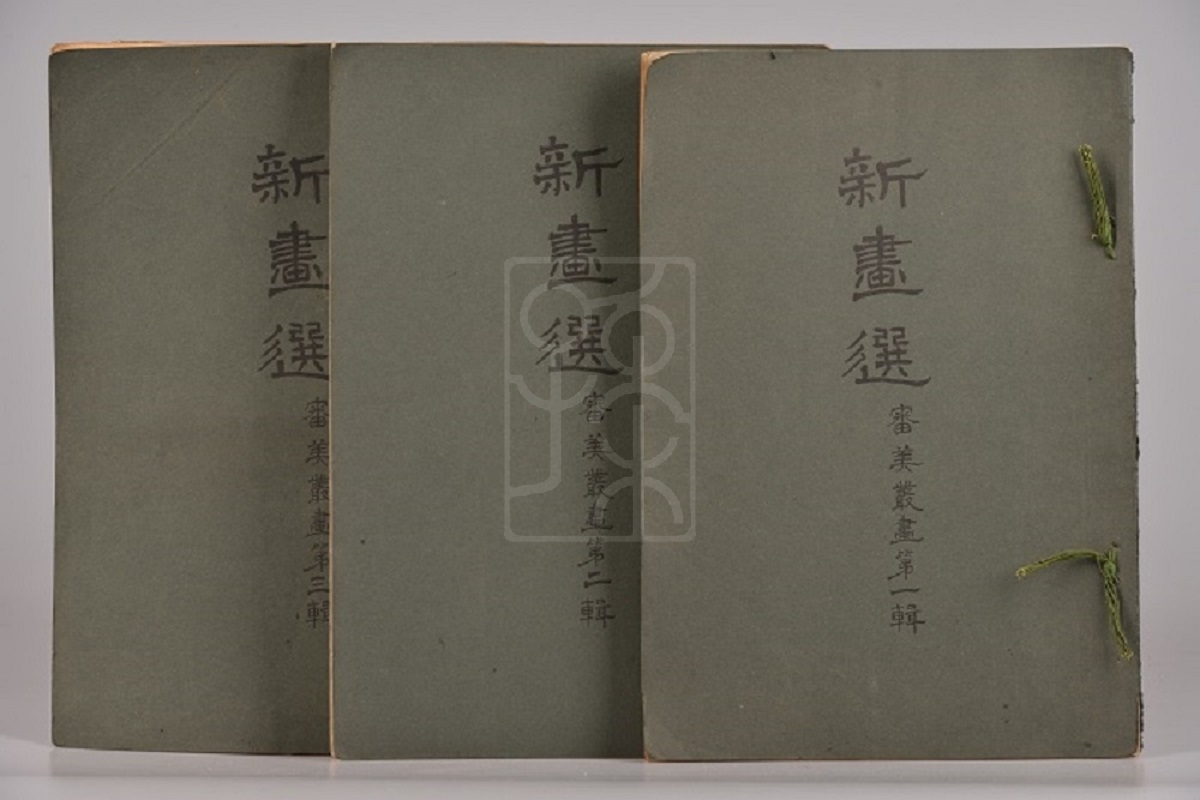 新畫選
審美叢畫第一輯
新畫選
審美叢畫第二輯
新畫選
審美叢畫第三輯